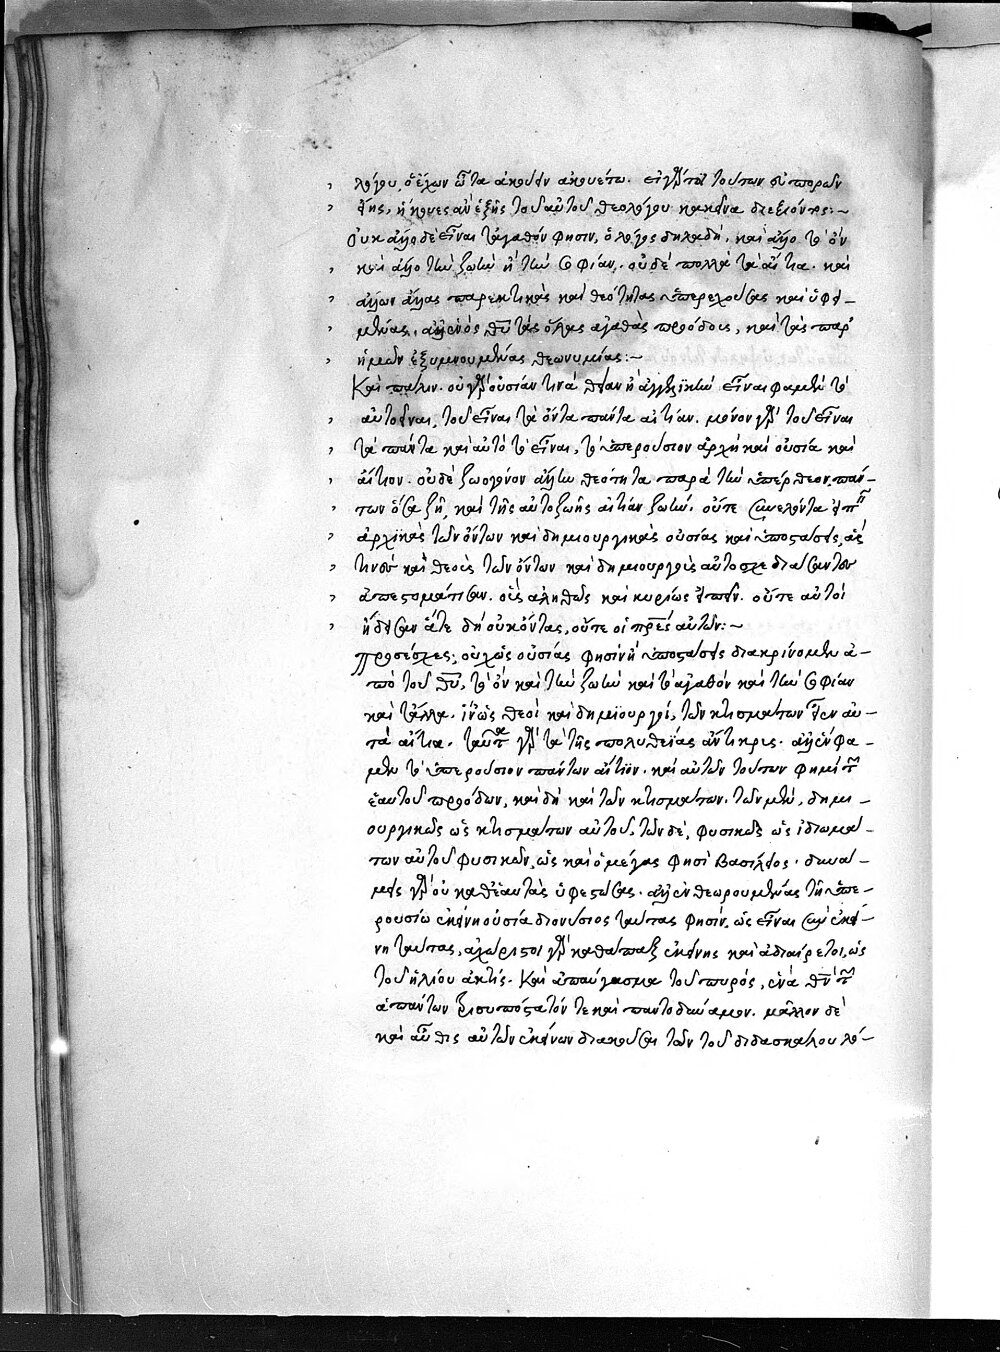 λόγου, ὁ ἔχων ὦτα ἀκούειν ἀκουέτω.
τῆς, ἤκουες ἂν ἑξῆς τοῦ αὐτοῦ θεολόγου κἀκεῖνα διεξιόντος:~
Οὐκ ἄλλο δὲ εἶναι τἀγαθόν φησιν, ὁ λόγος δηλαδή, καὶ ἄλλο τὸ ὂν
καὶ ἄλλο τὴν ζωὴν ἢ τὴν σοφίαν. οὐδὲ πολλὰ τὰ αἴτια. καὶ
ἄλλων ἄλλας παρεκτικὰς καὶ θεότητας ὑπερεχούσας καὶ ὑφει-
μένας. ἀλλ' ἑνὸς θεοῦ τὰς ὅλας ἀγαθὰς προόδους, καὶ τὰς παρ'
ἡμῶν ἐξυμνουμένας θεωνυμίας:~
Καὶ πάλιν. οὐ γὰρ οὐσίαν τινὰ θείαν ἢ ἀγγελικὴν εἶναι φαμὲν τὸ
αὐτοεῖναι, τοῦ εἶναι τὰ ὄντα πάντα αἰτίαν. μόνον γὰρ τοῦ εἶναι
τὰ πάντα καὶ αὐτὸ τὸ εἶναι, τὸ ὑπερούσιον ἀρχὴ καὶ οὐσία καὶ
αἴτιον. οὐδὲ ζωογόνον ἄλλην θεότητα παρὰ τὴν ὑπέρθεον, πάν-
των ὅσα ζῇ, καὶ τῆς αὐτοζωῆς αἰτίαν ζωήν. οὔτε συνελόντα εἰπεῖν
ἀρχικὰς τῶν ὄντων καὶ δημιουργικὰς οὐσίας καὶ ὑποστάσεις, ἅς
τινες καὶ θεοὺς τῶν ὄντων καὶ δημιουργοὺς αὐτοσχεδιάσαντες
ἀπεστομάτισαν. οὓς ἀληθῶς καὶ κυρίως εἰπεῖν. οὔτε αὐτοὶ
ᾔδεισαν ἅτε δὴ οὐκ ὄντας, οὔτε οἱ πατέρες αὐτῶν:~
Προσέσχες; οὐχ ὡς οὐσίας φησὶν ἢ ὑποστάσεις διακρίνομεν ἀ-
πὸ τοῦ θεοῦ, τὸ ὂν καὶ τὴν ζωὴν καὶ τἀγαθὸν καὶ τὴν σοφίαν
καὶ τἄλλα. ἵν' ὡς θεοὶ καὶ δημιουργοί, τῶν κτισμάτων εἶεν αὐ-
τὰ αἴτια. ταῦτα γὰρ τὰ τῆς πολυθεΐας ἄντικρυς. ἀλλ' ἓν φα-
μὲν τὸ ὑπερούσιον πάντων αἴτιον. καὶ αὐτῶν τούτων φημὶ τῶν
ἑαυτοῦ προόδων, καὶ δὴ καὶ τῶν κτισμάτων. τῶν μὲν, δημι-
ουργικῶς ὡς κτισμάτων αὐτοῦ, τῶν δὲ, φυσικῶς ὡς ἰδιωμά-
των αὐτοῦ φυσικῶν, ὡς καὶ ὁ μέγας φησὶ Βασίλειος. δυνά-
μεις γὰρ οὐ καθ' ἑαυτὰς ὑφεστώσας. ἀλλ' ἐνθεωρουμένας τῇ ὑπε-
ρουσίῳ ἐκείνῃ οὐσίᾳ διονύσιος ταύτας φησὶν, ὡς εἶναι σὺν ἐκεί-
νῃ ταύτας, ἀχώριστοι γὰρ καθάπαξ ἐκείνης καὶ ἀδιαίρετοι, ὡς
τοῦ ἡλίου ἀκτίς. Καὶ ἀπαύγασμα τοῦ πυρός, ἕνα θεὸν τὸν
ἁπάντων τρισυπόστατόν τε καὶ παντοδύναμον. μᾶλλον δὲ
καὶ αὖθις αὐτῶν ἐκείνων διακοῦσαι τῶν τοῦ διδασκάλου λό-